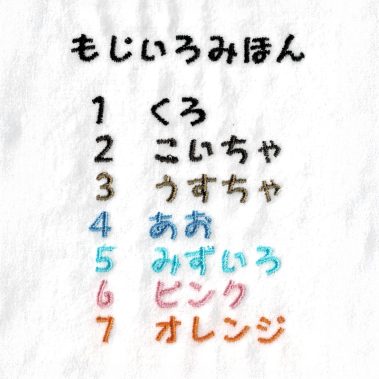 もじいろみほん
1 くろ
2 こいちゃ
3 うすちゃ
4 あお
5 みずいろ
6 ピンク
7 オレンジ